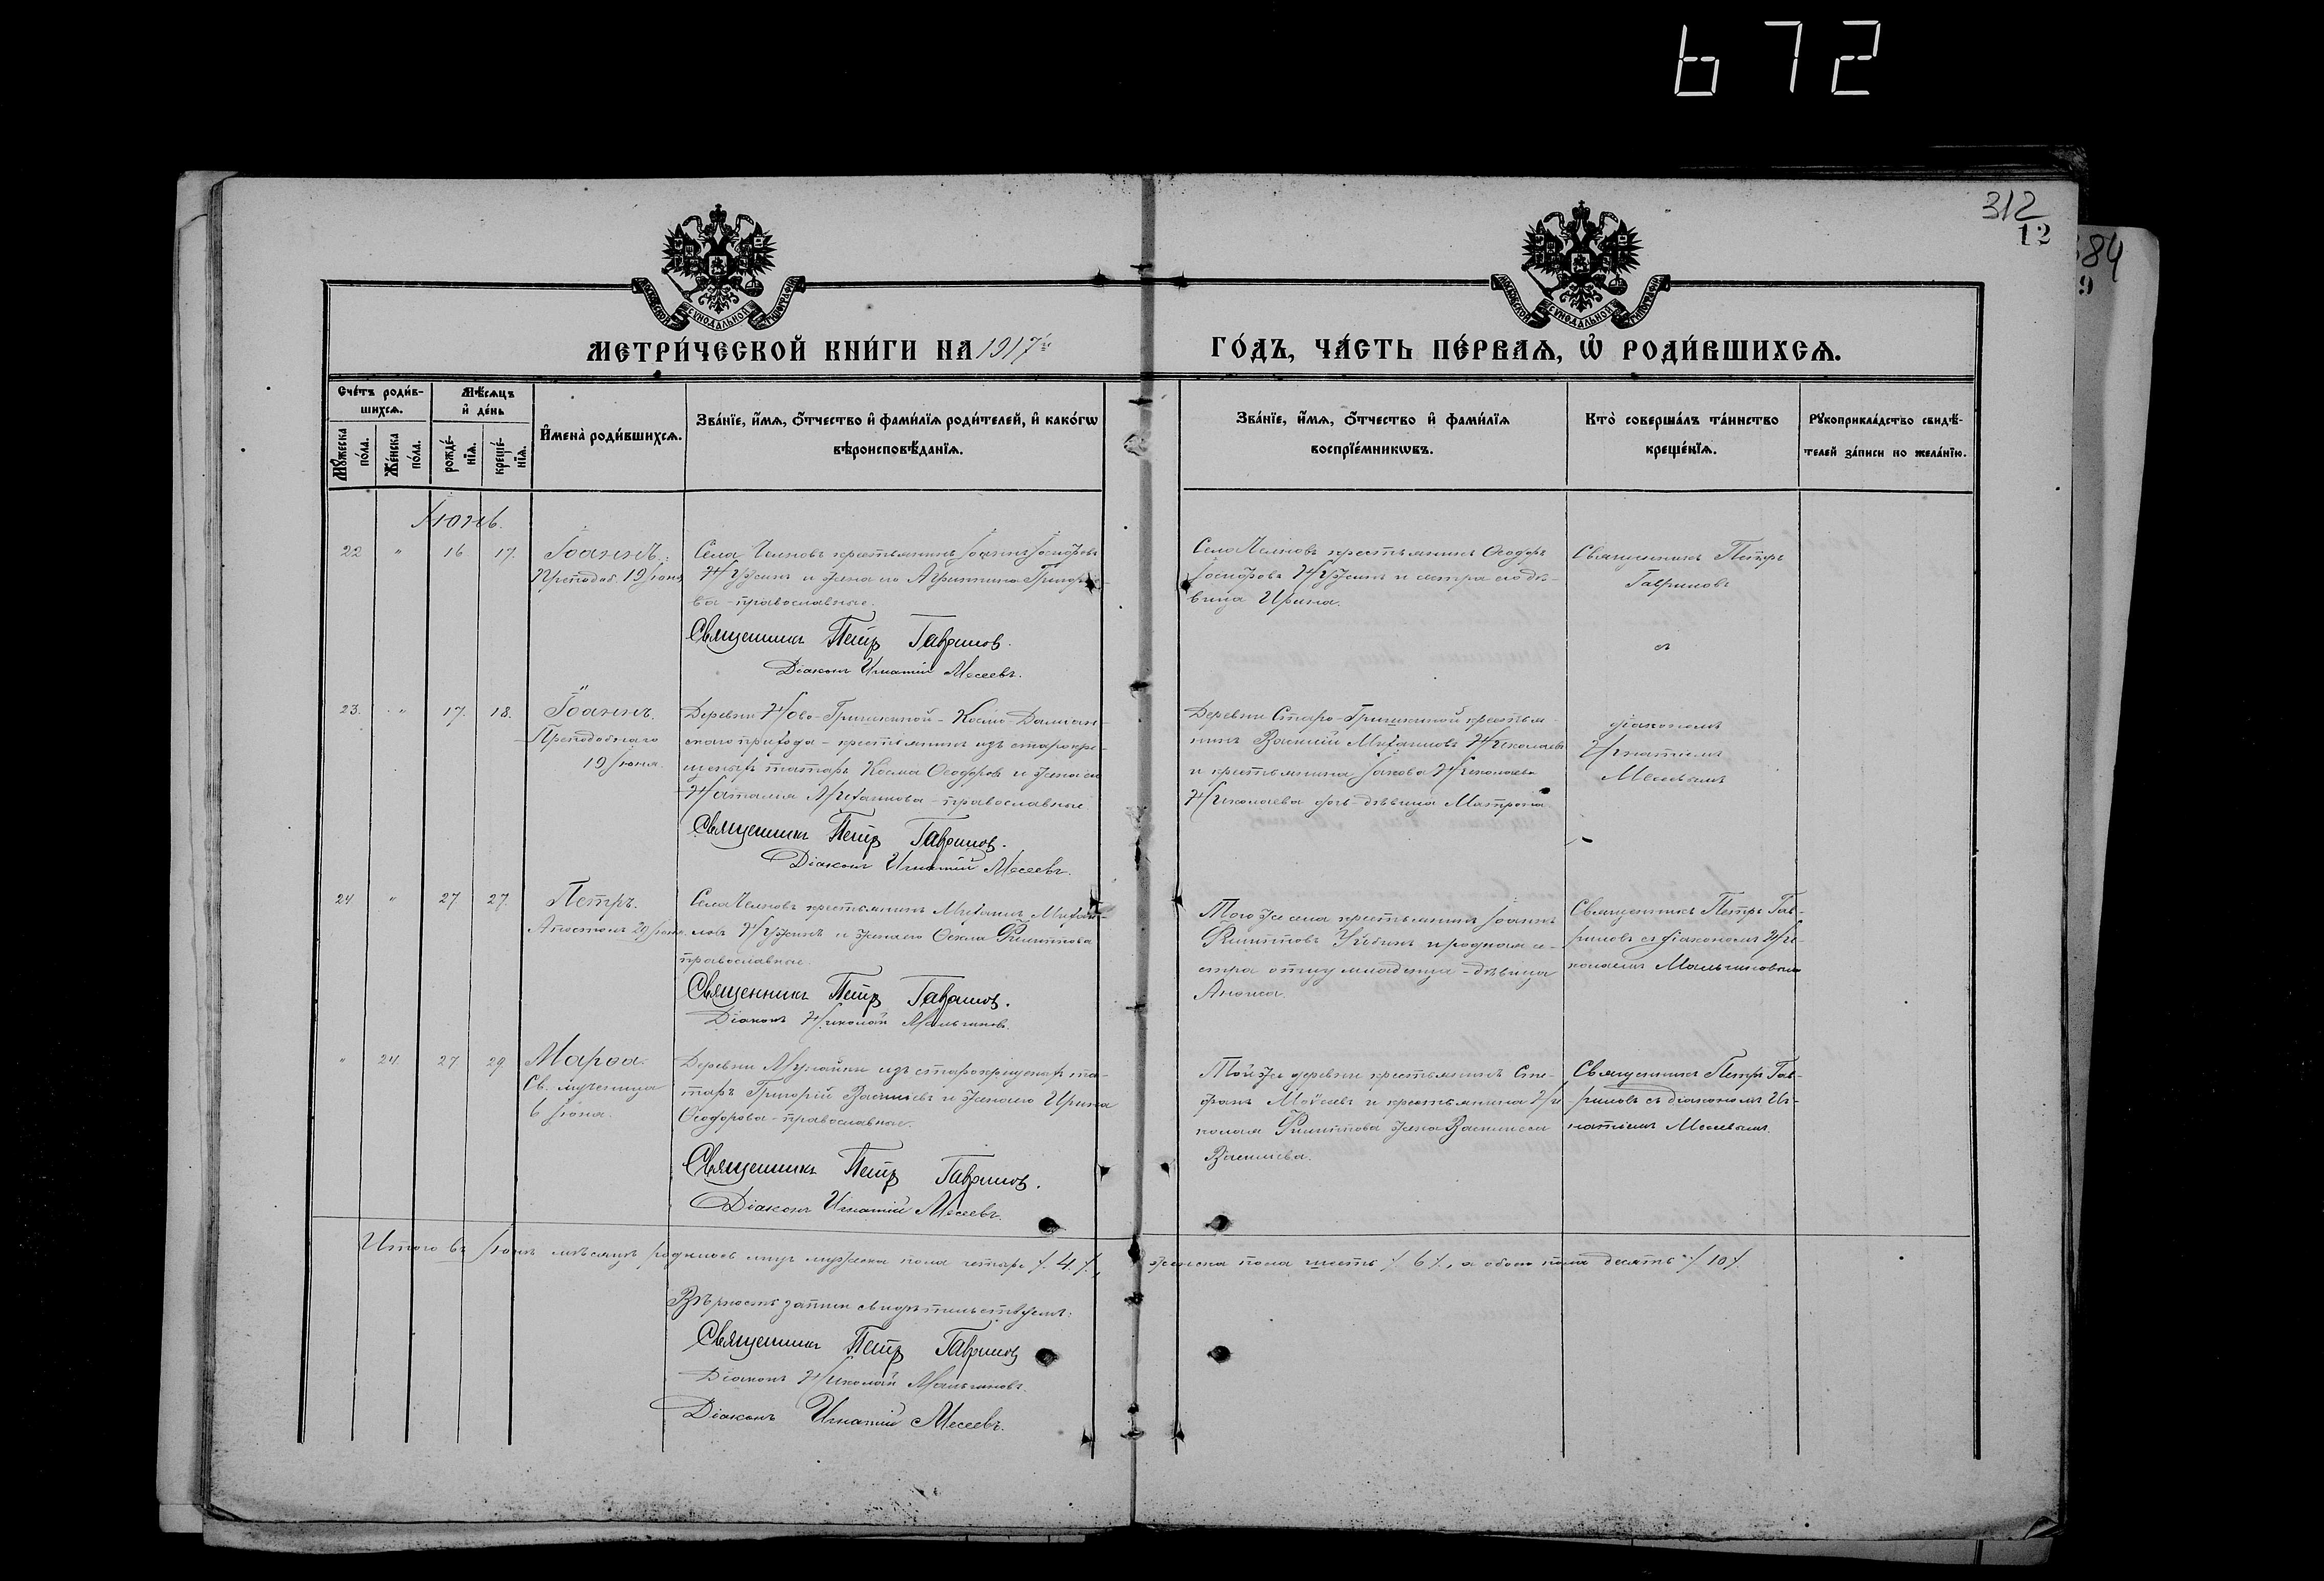 672
312
12
84
9
МОСКОВСКОЙ СѴНОДАЛЬНОЙ ТИПОГРАФІИ
МОСКОВСКОЙ СѴНОДАЛЬНОЙ ТИПОГРАФІИ
МЕТРИ́ЧЕСКОЙ КНИ́ГИ НА 1917й ГО́ДЪ, ЧА́СТЬ ПЕ́РВАѦ, Ѽ РОДИ́ВШИХСѦ.
Сче́тъ роди́в-
шихсѧ.
Мѣ́сѧцъ
и҆ де́нь
Мꙋ́жеска
по́ла.
Же́нска
по́ла.
рожде́-
нїѧ.
креще́-
нїѧ.
И҆мена̀ роди́вшихсѧ.
Зва́нїе, и҆́мѧ, ѻ҆́тчество и҆ фами́лїѧ роди́телей, и҆ како́гѡ
вѣроисповѣ́данїѧ.
Зва́нїе, и҆́мѧ, ѻ҆́тчество и҆ фами́лїѧ
воспрїе́мникѡвъ.
Кто̀ соверша́лъ та́инство
креще́нїѧ.
Рꙋкоприкла́дство свидѣ́-
телей за́писи по жела́нїю.
Іюнь.
22 " 16 17. Іоаннъ.
Преподоб. 19 Іюня
Села крестьянинъ Іоаннъ Іосифовъ
и жена его Агриппина Григорье-
ва - православные.
Священникъ Петр Гаврилов.
Діаконъ Игнатій Месеевъ.
крестьянинъ Ѳеодоръ
Іосифовъ и сестра его дѣ-
вица Ирина.
Священникъ Петръ
Гавриловъ
съ
23. " 17. 18. Іоаннъ.
Преподобнаго
19 Іюня.
Деревни Ново-Гришкиной - Космо-Даміан-
скаго прихода - крестьянинъ изъ старокре-
щеныхъ татаръ Косма Ѳеодоровъ и жена его
Наталия Михаилова - православные.
Священникъ Петр Гаврилов.
Діаконъ Игнатій Месеевъ.
Деревни Старо-Гришкиной крестья-
нинъ Василій Михаиловъ Николаевъ
и крестьянина Іакова Николаева
Николаева дочь - дѣвица Матрона
діакономъ
Игнатіемъ
Месеевымъ
24 " 27 27. Петръ.
Апостолъ 29 Іюня.
Села крестьянинъ Михаилъ Михаи-
ловъ и жена его Ѳекла Филиппова
православные.
Священникъ Петр Гаврилов.
Діаконъ Николай Мальчиковъ.
Того же села крестьянинъ Іоаннъ
Филипповъ и родная се-
стра отцу младенца - дѣвица
Священникъ Петръ Гав-
риловъ съ діакономъ Ни-
колаемъ Мальчиковымъ
" 24. 27 29 Марѳа.
Св. мученица
6 Іюня.
Деревни изъ старокрещеныхъ та-
таръ Григорій Васильевъ и жена его Ирина
Ѳеодорова - православные.
Священникъ Петр Гаврилов.
Діаконъ Игнатій Месеевъ.
Той же деревни крестьянинъ Сте-
фанъ Моѵсеевъ и крестьянина Ни-
колая Филиппова жена Василисса
Васильева.
Священникъ Петръ Гав-
риловъ съ діакономъ Иг-
натіемъ Месеевымъ.
Итого въ Іюнѣ мѣсяцѣ родилось муж мужеска пола четыре /. 4. /., женска пола шесть /. 6 /., а обоего пола десять /. 10 /.
Вѣрность записи свидѣтельствуемъ:
Священникъ Петр Гаврилов
Діаконъ Николай Мальчиковъ.
Діаконъ Игнатій Месеевъ.